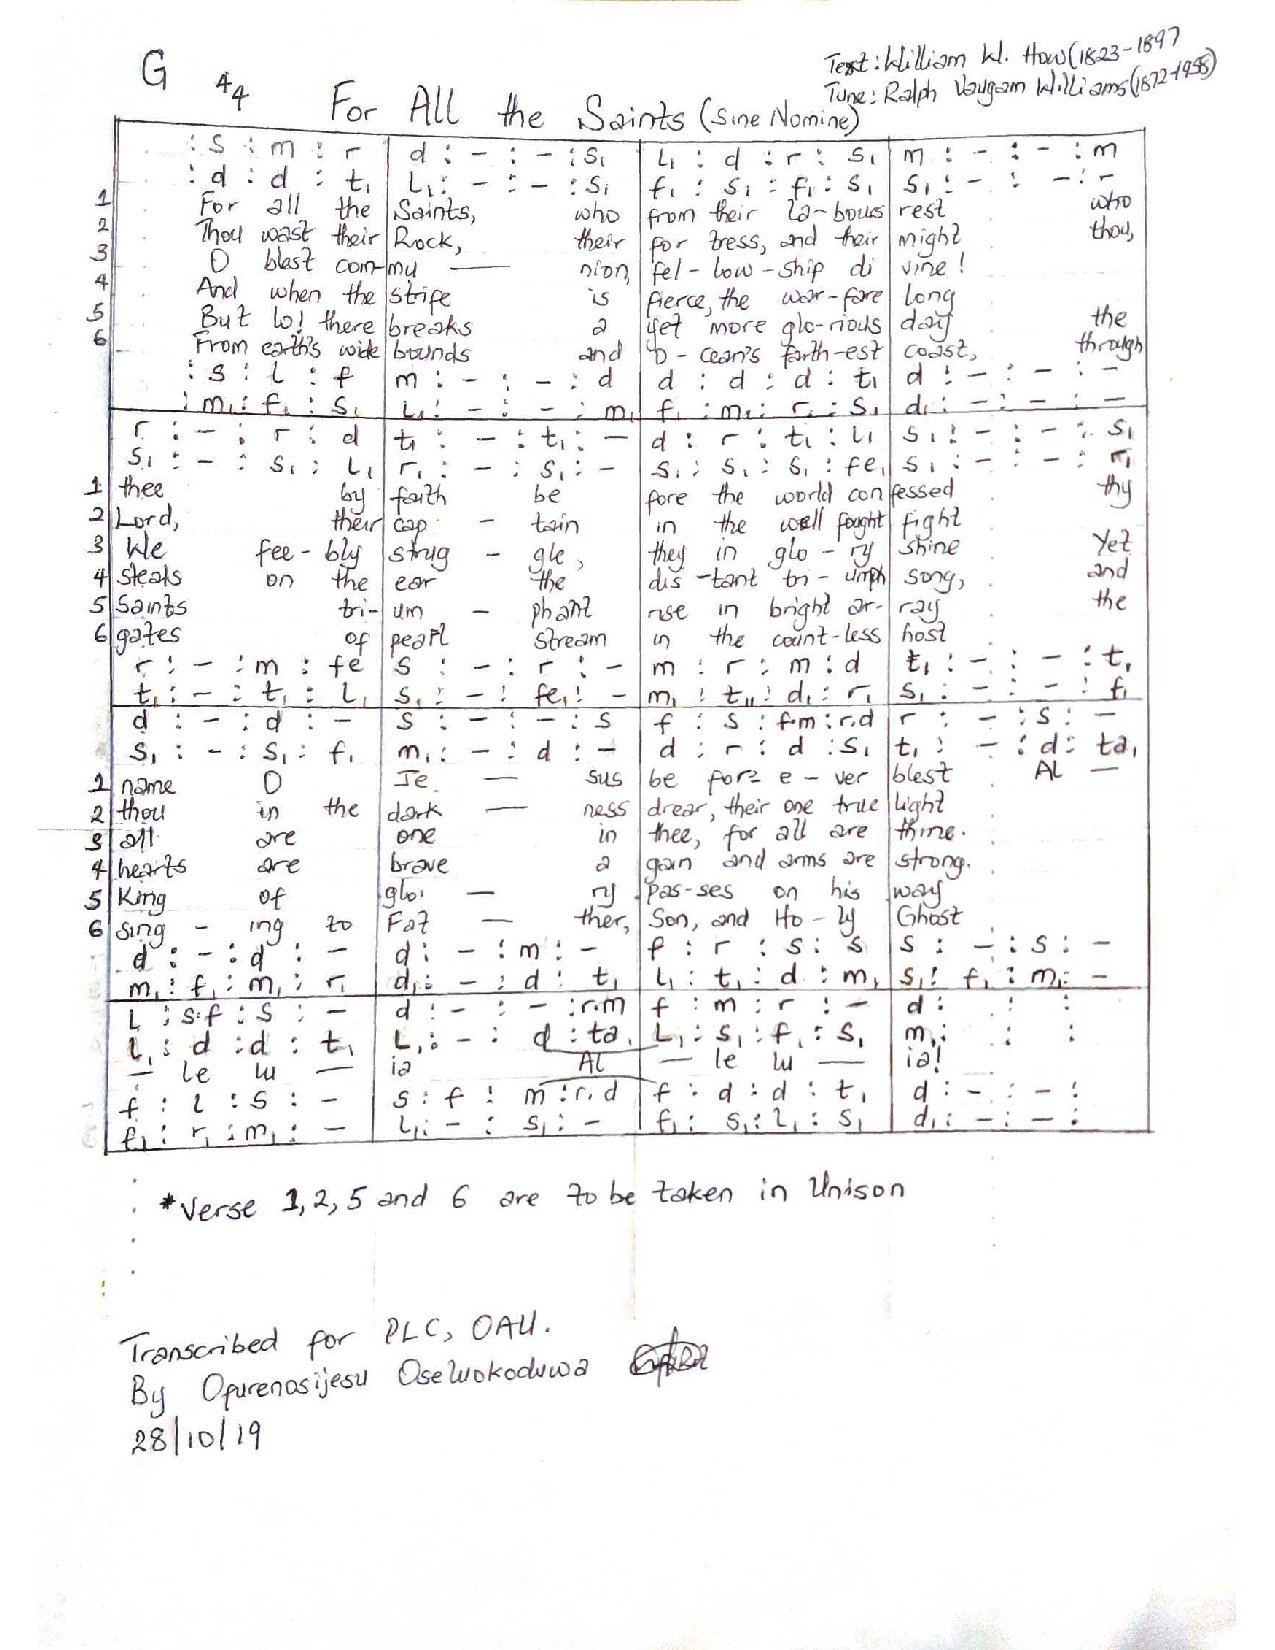 Text: William W. How (1823-1897
G 4/4 Tune: Ralph Vaugam Williams (1872-1958)
For All the Saints (Sine Nomine)
: s : m : r | d : - : - : s₁ | L₁ : d : r : s₁ | m : - : - : m
: d : d : t₁ | L₁ : - : - : s₁ | f₁ : s₁ : f₁ : s₁ | s₁ : - : - : r
1 For all the | Saints, who | from their la-bours | rest who
2 Thou wast their | Rock, their | for tress, and their | might thou,
3 O blest com- | mu — nion, | fel-low-ship di | vine!
4 And when the | stripe is | fierce, the war-fare | long
5 But lo! there | breaks a | yet more glo-rious | day the
6 From earth's wide | bounds and | O-cean's farth-est | coast, through
: s : L : f | m : - : - : d | d : d : d : t₁ | d : - : - : -
: m₁ : f₁ : s₁ | L₁ : - : - : m₁ | f₁ : m₁ : r₁ : s₁ | d₁ : - : - : -
r : - : r : d | t₁ : - : t₁ : - | d : r : t₁ : L₁ | s₁ : - : - : s₁
s₁ : - : s₁ : L₁ | r₁ : - : s₁ : - | s₁ : s₁ : s₁ : fe₁ | s₁ : - : - : r₁
1 thee by | faith be | fore the world con | fessed thy
2 Lord, their | cap - tain | in the well fought | fight
3 We fee-bly | strug - gle, | they in glo-ry | shine Yet
4 steals on the | ear the | dis-tant tri-umph | song, and
5 Saints tri- | um - phant | rise in bright ar- | ray the
6 gates of | pearl stream | in the count-less | host
r : - : m : fe | s : - : r : - | m : r : m : d | t₁ : - : - : t₁
t₁ : - : t₁ : L₁ | s₁ : - : fe₁ : - | m₁ : t₁₁ : d₁ : r₁ | s₁ : - : - : f₁
d : - : d : - | s : - : - : s | f : s : f.m : r.d | r : - : s : -
s₁ : - : s₁ : f₁ | m₁ : - : d : - | d : r : d : s₁ | t₁ : - : d : ta₁
1 name O | Je — sus | be fore e-ver | blest Al —
2 thou in the | dark — ness | drear, their one true | light
3 all are | one in | thee, for all are | thine.
4 hearts are | brave a | gain and arms are | strong.
5 King of | glo — ry | pas-ses on his | way
6 sing - ing to | Fat — ther, | Son, and Ho-ly | Ghost
d : - : d : - | d : - : m : - | f : r : s : s | s : - : s : -
m₁ : f₁ : m₁ : r₁ | d₁ : - : d : t₁ | L₁ : t₁ : d : m₁ | s₁ : f₁ : m₁ : -
L : s.f : s : - | d : - : - : r.m | f : m : r : - | d : : :
L₁ : d : d : t₁ | L₁ : - : d : ta₁ | L₁ : s₁ : f₁ : s₁ | m₁ : : :
— le lu — | ia Al | — le lu — | ia!
f : l : s : - | s : f : m : r.d | f : d : d : t₁ | d : - : - :
f₁ : r₁ : m₁ : - | L₁ : - : s₁ : - | f₁ : s₁ : L₁ : s₁ | d₁ : - : - :
*Verse 1,2,5 and 6 are to be taken in Unison
Transcribed for PLC, OAU.
By Ofurenosijesu Oselwokoduwa
28/10/19